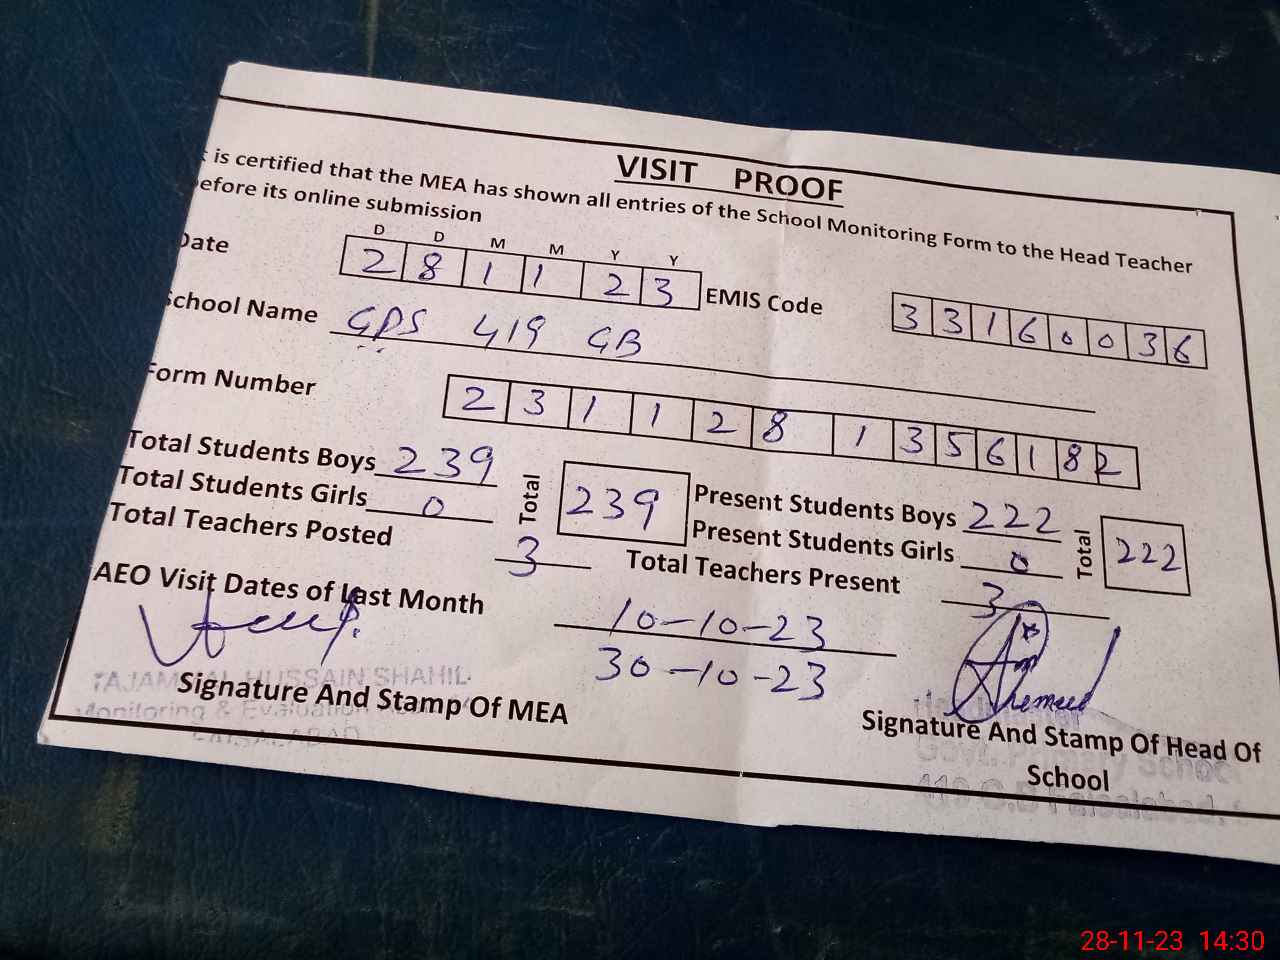 VISIT PROOF
is certified that the MEA has shown all entries of the School Monitoring Form to the Head Teacher
before its online submission
D D M M Y Y
Date 2 8 1 1 2 3 EMIS Code 3 3 1 6 0 0 3 6
School Name GPS 419 GB
Form Number 2 3 1 1 2 8 1 3 5 6 1 8 2
Total Students Boys 239 Total 239 Present Students Boys 222 Total 222
Total Students Girls 0 Present Students Girls 0
Total Teachers Posted 3 Total Teachers Present 3
AEO Visit Dates of Last Month 10-10-23
30-10-23
TAJAMMAL HUSSAIN SHAHIL
Signature And Stamp Of MEA
Monitoring & Evaluation
FAISALABAD
Signature And Stamp Of Head Of
School
Head Master
Govt. Primary School
419 G.B Faisalabad.
28-11-23 14:30